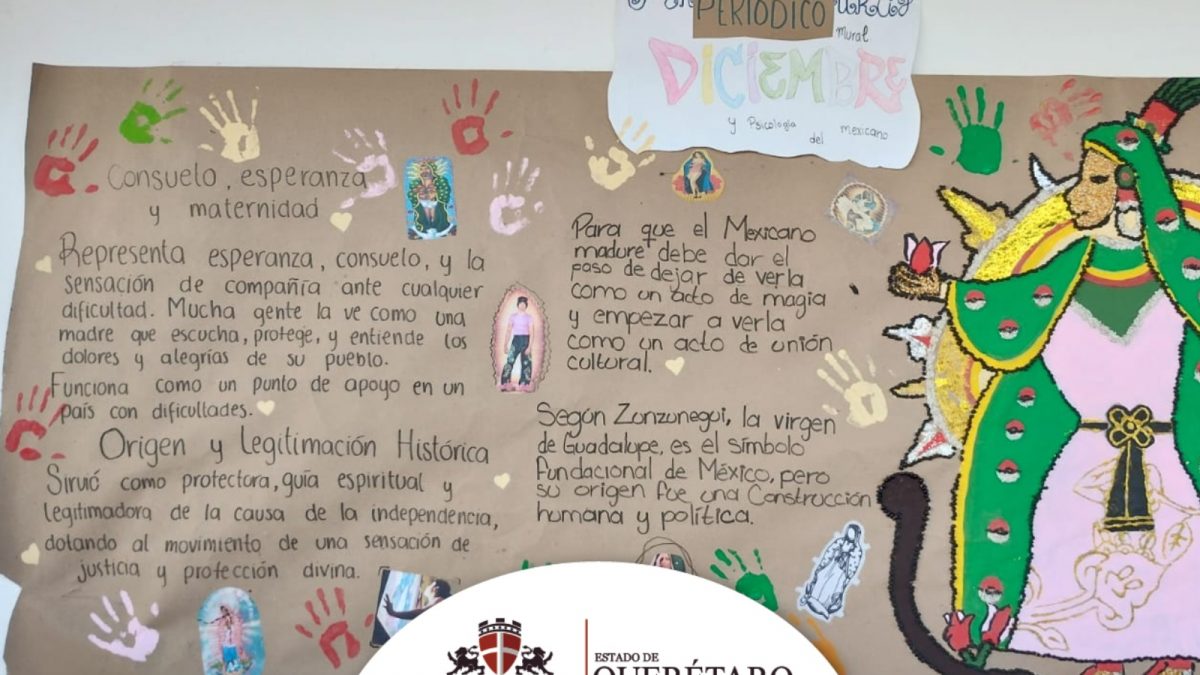 PERIÓDICO
mural
DICIEMBRE
y Psicología
del mexicano
Consuelo, esperanza
y maternidad
Representa esperanza, consuelo, y la
sensación de compañía ante cualquier
dificultad. Mucha gente la ve como una
madre que escucha, protege, y entiende los
dolores y alegrías de su pueblo.
Funciona como un punto de apoyo en un
país con dificultades.
Origen y Legitimación Histórica
Sirvió como protectora, guía espiritual y
legitimadora de la causa de la independencia,
dotando al movimiento de una sensación de
justicia y protección divina.
Para que el Mexicano
madure debe dar el
paso de dejar de verla
como un acto de magia
y empezar a verla
como un acto de unión
cultural.
Según Zonzunegui, la virgen
de Guadalupe, es el símbolo
fundacional de México, pero
su origen fue una Construcción
humana y política.
ESTADO DE
QUERÉTARO